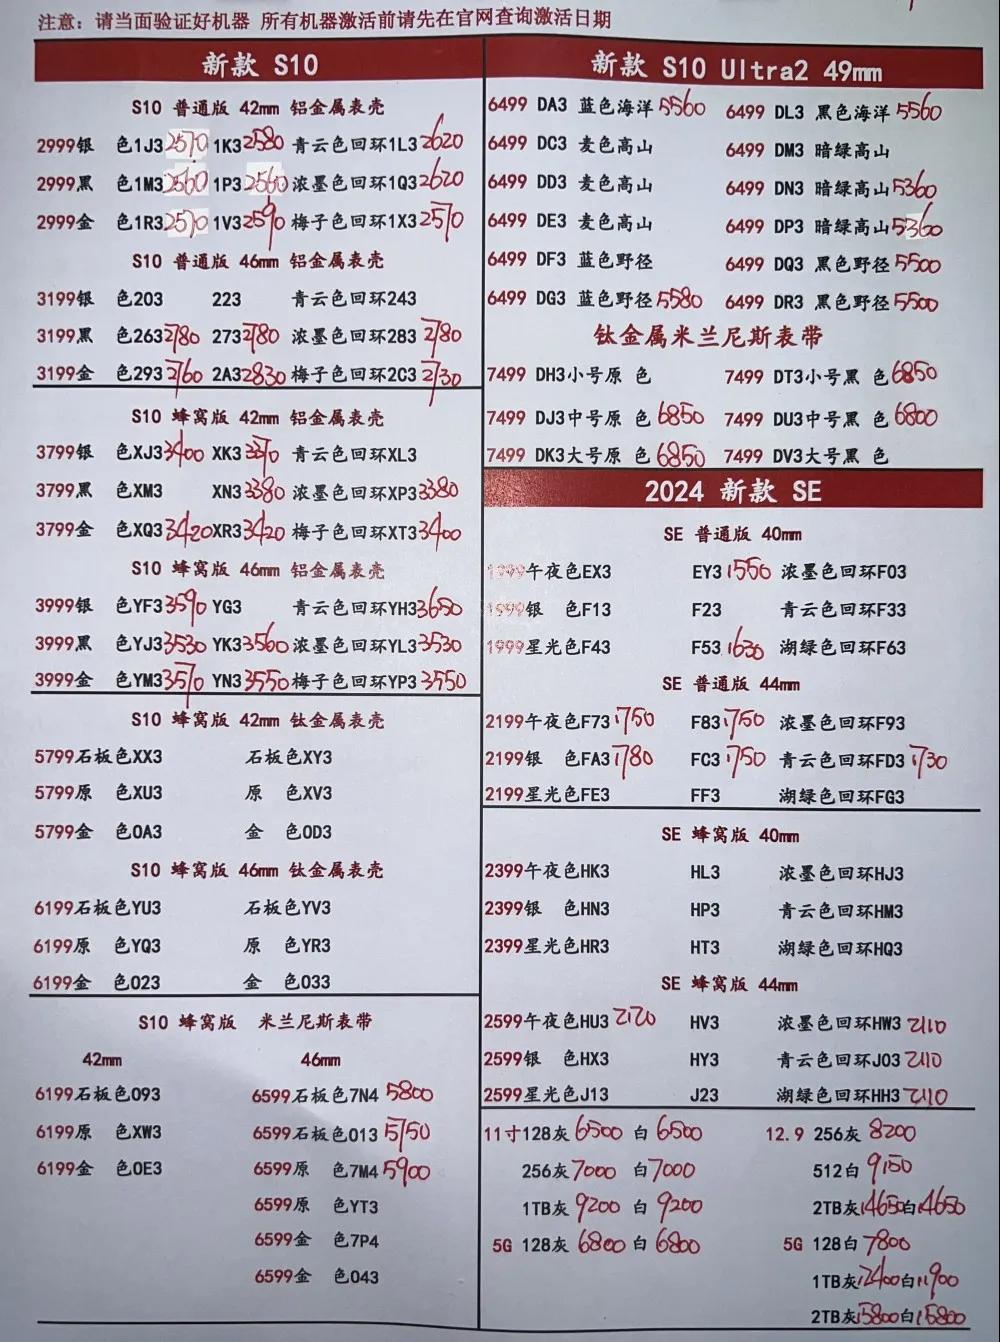 注意：请当面验证好机器 所有机器激活前请先在官网查询激活日期
新款 S10
S10 普通版 42mm 铝合金属表壳
2999银 色1J3 2570 1K3 2580 青云色回环1L3 2620
2999黑 色1M3 2560 1P3 2560 浓墨色回环1Q3 2620
2999金 色1R3 2570 1V3 2590 梅子色回环1X3 2570
S10 普通版 46mm 铝金属表壳
3199银 色203 223 青云色回环243
3199黑 色263 2780 273 2780 浓墨色回环283 2780
3199金 色293 2760 2A3 2830 梅子色回环2C3 2730
S10 蜂窝版 42mm 铝金属表壳
3799银 色XJ3 3400 XK3 3370 青云色回环XL3
3799黑 色XM3 XN3 3380 浓墨色回环XP3 3380
3799金 色XQ3 3420 XR3 3420 梅子色回环XT3 3400
S10 蜂窝版 46mm 铝金属表壳
3999银 色YF3 3590 YG3 青云色回环YH3 3650
3999黑 色YJ3 3530 YK3 3560 浓墨色回环YL3 3530
3999金 色YM3 3570 YN3 3550 梅子色回环YP3 3550
S10 蜂窝版 42mm 钛金属表壳
5799石板色XX3 石板色XY3
5799原 色XU3 原 色XV3
5799金 色0A3 金 色0D3
S10 蜂窝版 46mm 钛金属表壳
6199石板色YU3 石板色YV3
6199原 色YQ3 原 色YR3
6199金 色023 金 色033
S10 蜂窝版 米兰尼斯表带
42mm 46mm
6199石板色093 6599石板色7N4 5800
6199原 色XW3 6599石板色013 5750
6199金 色0E3 6599原 色7M4 5900
6599原 色YT3
6599金 色7P4
6599金 色043
新款 S10 Ultra2 49mm
6499 DA3 蓝色海洋 5560 6499 DL3 黑色海洋 5560
6499 DC3 麦色高山 6499 DM3 暗绿高山
6499 DD3 麦色高山 6499 DN3 暗绿高山 5360
6499 DE3 麦色高山 6499 DP3 暗绿高山 5360
6499 DF3 蓝色野径 6499 DQ3 黑色野径 5500
6499 DG3 蓝色野径 5580 6499 DR3 黑色野径 5500
钛金属米兰尼斯表带
7499 DH3小号原 色 7499 DT3小号黑 色 6850
7499 DJ3中号原 色 6850 7499 DU3中号黑 色 6800
7499 DK3大号原 色 6850 7499 DV3大号黑 色
2024 新款 SE
SE 普通版 40mm
1999午夜色EX3 EY3 1550 浓墨色回环F03
1999银 色F13 F23 青云色回环F33
1999星光色F43 F53 1630 湖绿色回环F63
SE 普通版 44mm
2199午夜色F73 1750 F83 1750 浓墨色回环F93
2199银 色FA3 1780 FC3 1750 青云色回环FD3 1730
2199星光色FE3 FF3 湖绿色回环FG3
SE 蜂窝版 40mm
2399午夜色HK3 HL3 浓墨色回环HJ3
2399银 色HN3 HP3 青云色回环HM3
2399星光色HR3 HT3 湖绿色回环HQ3
SE 蜂窝版 44mm
2599午夜色HU3 2120 HV3 浓墨色回环HW3 2110
2599银 色HX3 HY3 青云色回环J03 2110
2599星光色J13 J23 湖绿色回环HH3 2110
11寸128灰 6500 白 6500 12.9 256灰 8200
256灰 7000 白 7000 512白 9150
1TB灰 9200 白 9200 2TB灰 14650 白 14650
5G 128灰 6800 白 6800 5G 128白 7800
1TB灰 12400 白 11900
2TB灰 15800 白 15800